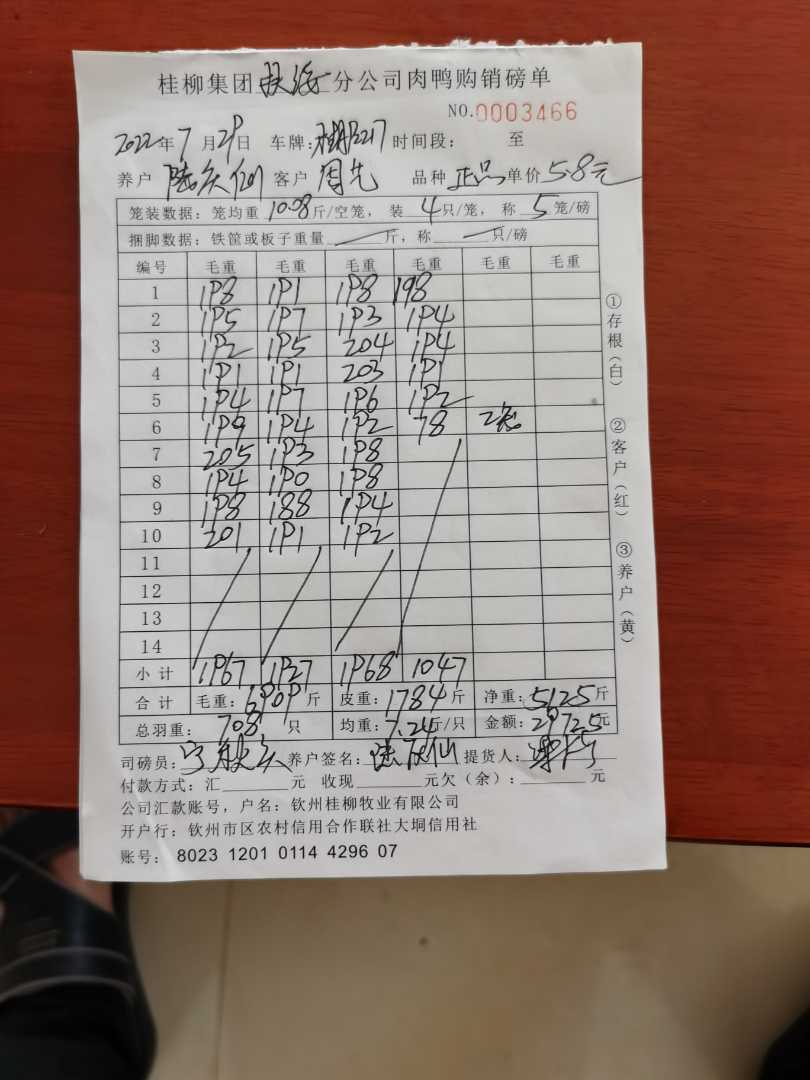 桂柳集团 分公司肉鸭购销磅单
NO.0003466
2022年7月29日 车牌: 时间段: 至
养户 陆庆仙 客户 周先 品种 正品 单价 5.8元
笼装数据: 笼均重 10.08 斤/空笼, 装 4 只/笼, 称 5 笼/磅
捆脚数据: 铁筐或板子重量 斤, 称 只/磅
编号 毛重 毛重 毛重 毛重 毛重 毛重
1 198 191 198 198
2 195 197 193 194
3 192 195 204 194
4 191 191 203 191
5 194 197 196 192
6 199 194 192 78 2笼
7 205 193 198
8 194 190 198
9 198 188 194
10 201 191 192
11
12
13
14
小计 1967 1927 1968 1047
合计 毛重: 6909 斤 皮重: 1784 斤 净重: 5125 斤
总羽重: 708 只 均重: 7.24 斤/只 金额: 29725 元
司磅员: 养户签名: 陆庆仙 提货人:
付款方式: 汇 元 收现 元欠(余): 元
公司汇款账号, 户名: 钦州桂柳牧业有限公司
开户行: 钦州市区农村信用合作联社大垌信用社
账号: 8023 1201 0114 4296 07
①存根(白)
②客户(红)
③养户(黄)